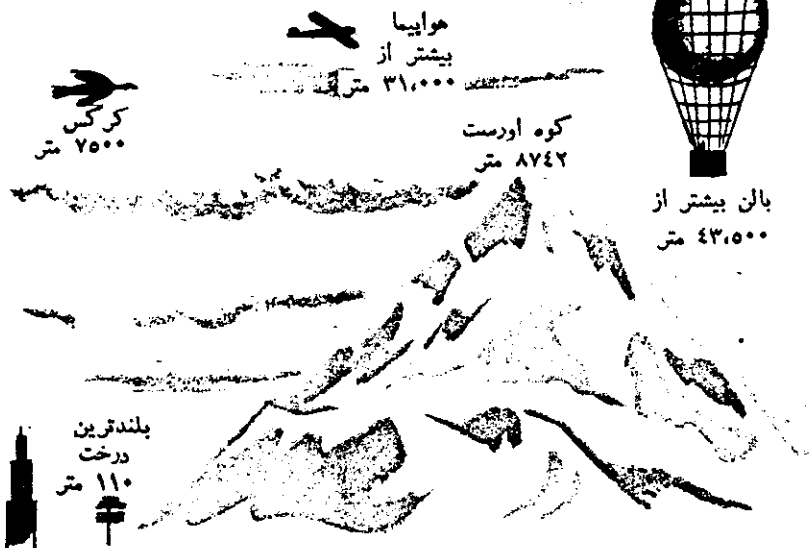 هواپیما
بیشتر از
۳۱،۰۰۰ متر
کرکس
۷۵۰۰ متر
کوه اورست
۸۷٤۲ متر
بالن بیشتر از
٤۳،۵۰۰ متر
بلندترین
درخت
۱۱۰ متر